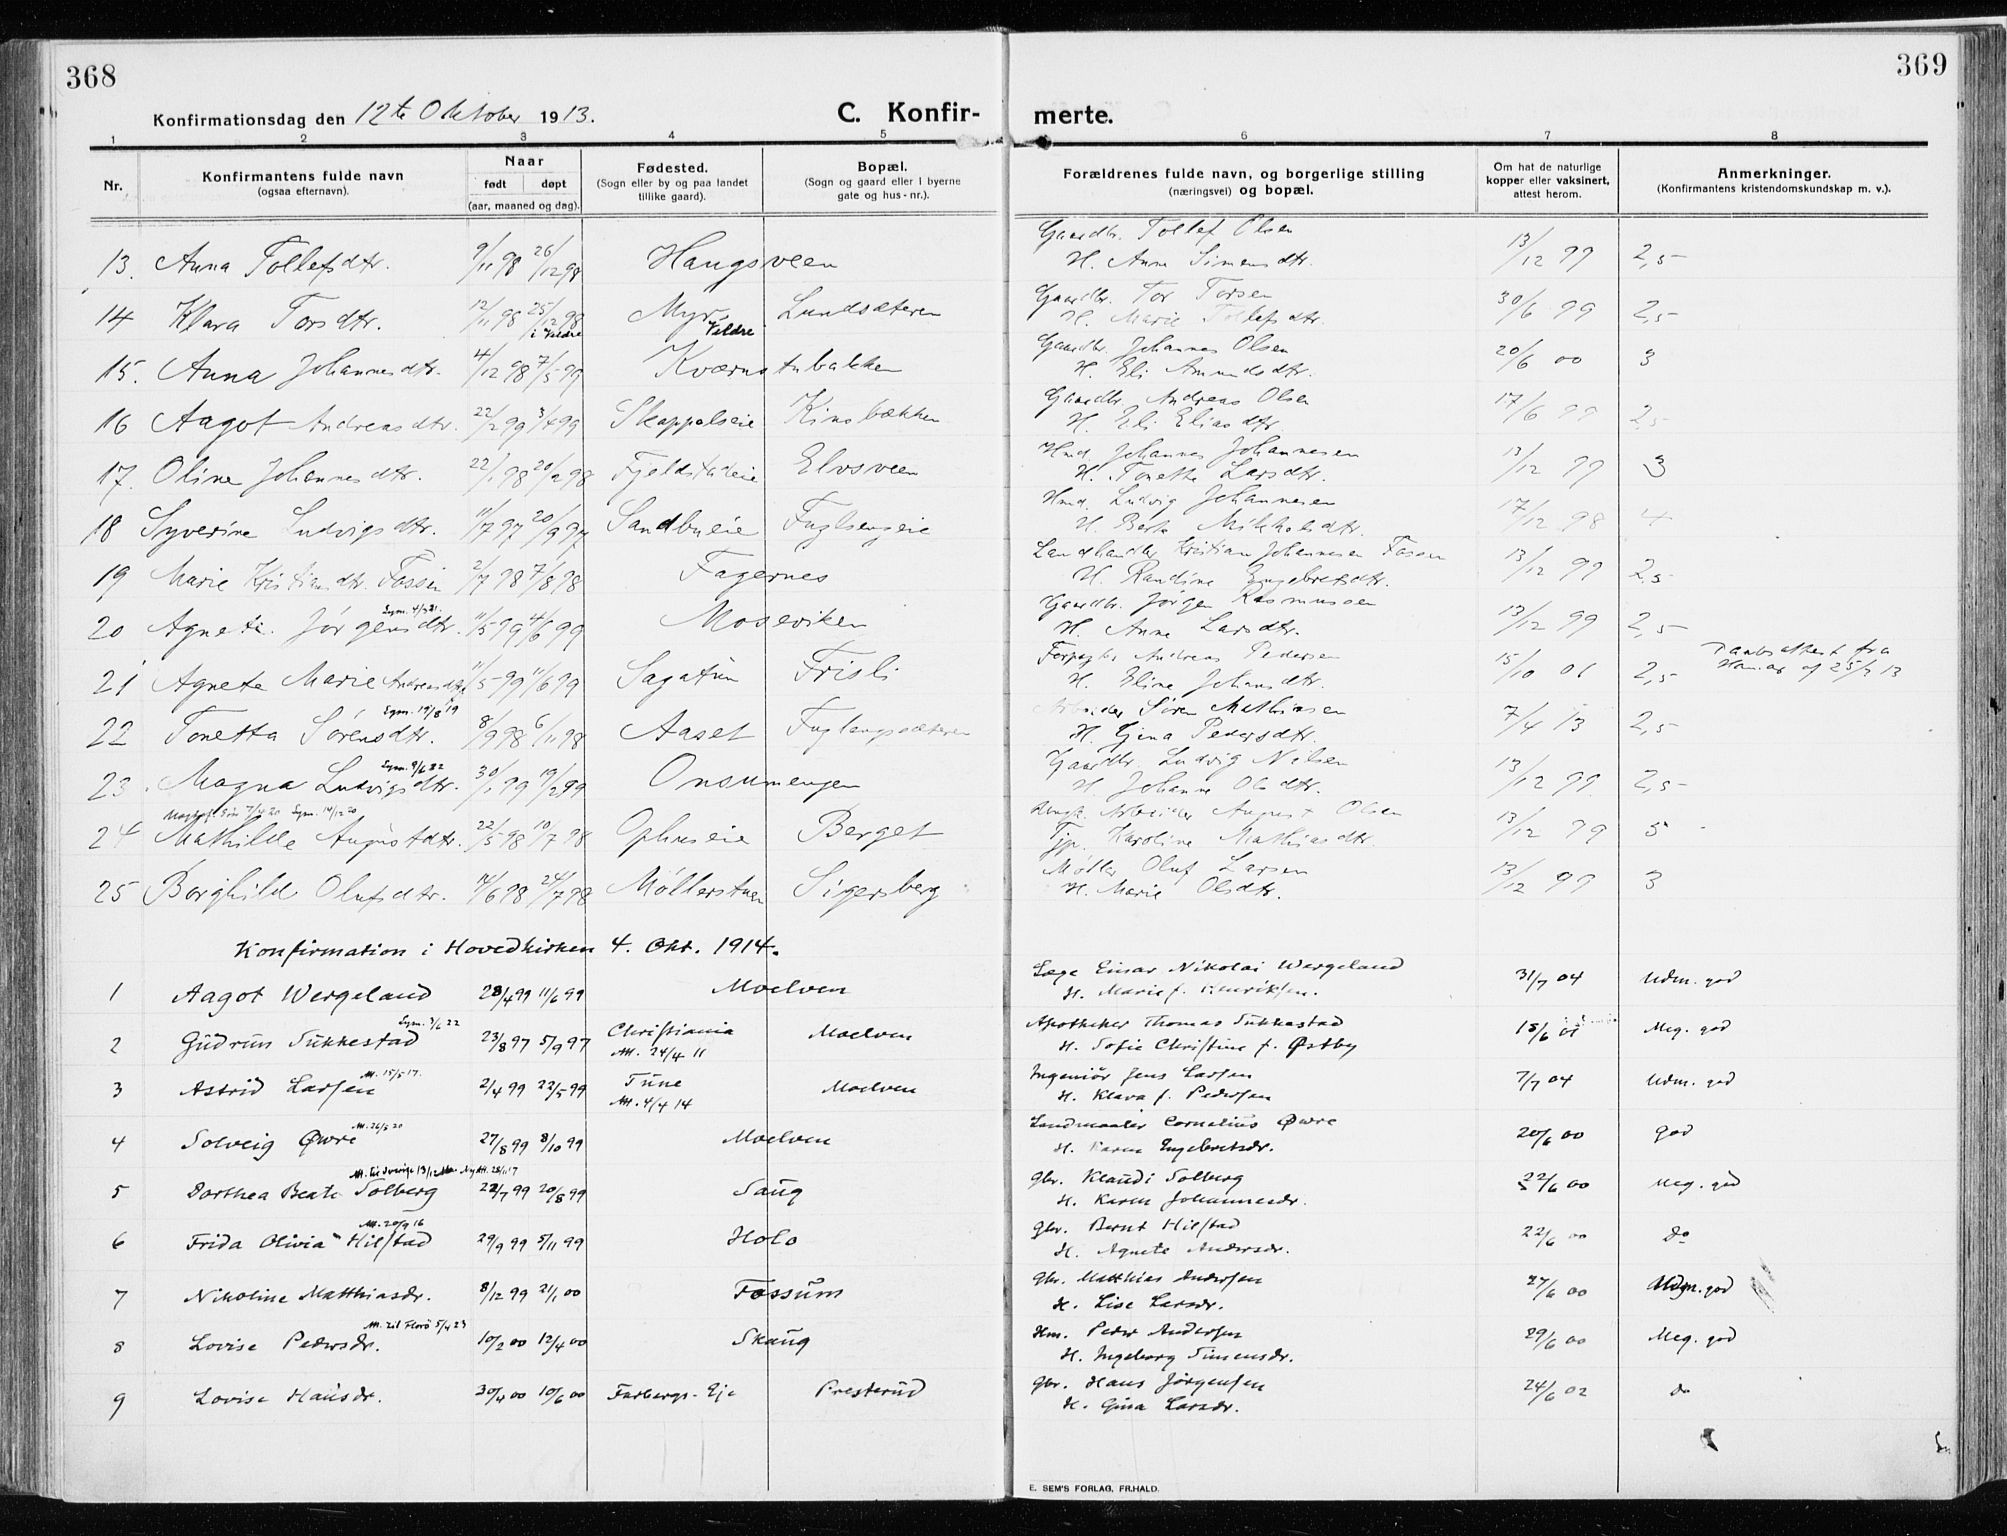 368
369
Konfirmationsdag den 12te Oktober 1913.
C. Konfir-
merte.
1 2 3 4 5 6 7 8
Nr.
Konfirmantens fulde navn
(ogsaa efternavn).
Naar
født døpt
(aar, maaned og dag).
Fødested.
(Sogn eller by og paa landet
tillike gaard).
Bopæl.
(Sogn og gaard eller i byerne
gate og hus-nr.).
Forældrenes fulde navn, og borgerlige stilling
(næringsvei) og bopæl.
Om hat de naturlige
kopper eller vaksinert,
attest herom.
Anmerkninger.
(Konfirmantens kristendomskundskap m. v.).
Gaardbr. Tollef Olsen
13. Anna Tollefsdtr. 9/11 98 26/12 98 Haugsveen H. Anne Simensdtr. 13/12 99 2,5
Gaardbr. Tor Torsen
14 Klara Torsdtr. 12/11 98 25/12 98 i Veldre Myr, Veldre Lundsæteren H. Marie Tollefsdtr. 30/6 99 2,5
Gaardbr. Johannes Olsen
15. Anna Johannesdtr. 4/12 98 7/5 99 Kværnstubakken H. Eli Amundsdtr. 20/6 00 3
Gaardbr. Andreas Olsen
16 Aagot Andreasdtr. 22/2 99 3/4 99 Skappelseie Kinsbækken H. Eli Eliasdtr. 17/6 99 2,5
Hmd. Johannes Johannesen
17. Oline Johannesdtr. 22/1 98 20/2 98 Fjeldstadeie Elvsveen H. Tonette Larsdtr. 13/12 99 3
Hmd. Ludvig Johannesen
18 Syverine Ludvigsdtr. 11/7 97 20/9 97 Sandbueie Fuglsengeie H. Berte Mikkelsdtr. 17/12 98 4
Landhandler Kristian Johannesen Fossen
19 Marie Kristiansdtr. Fossen 2/7 98 7/8 98 Fagernes H. Randine Engebretsdtr. 13/12 99 2,5
Gaardbr. Jørgen Rasmussen
Lym. 4/3 21.
20 Agnete Jørgensdtr. 11/5 99 4/6 99 Moseviken H. Anne Larsdtr. 13/12 99 2,5
Forpagter Andreas Pedersen
21 Agnete Marie Andreasdtr. 11/5 99 11/6 99 Sagatun Frisli H. Eline Johansdtr. 15/10 01 2,5 Daabsattest fra Hamar af 25/2 13
Lym. 19/8 19
Arbeider Søren Mathiasen
22 Tonetta Sørensdtr. 8/9 98 6/11 98 Aaset Fuglengsæteren H. Gina Pedersdtr. 7/4 13 2,5
Lym. 9/6 22
Gaardbr. Ludvig Nilsen
23. Magna Ludvigsdtr. 30/1 99 19/2 99 Onsumengen H. Johanne Olsdtr. 13/12 99. 2,5
Lym. 14/12 20
Arbeider August Olsen
24 Mathilde Augustdtr. 22/5 98 10/7 98 Ophuseie Berget Karoline Mathiasdtr. 13/12 99 5
Møller Oluf Larsen
25 Borghild Olufsdtr. 14/6 98 24/7 98 Møllerstuen Sigersberg H. Marie Olsdtr. 13/12 99 3
Konfirmation i Hovedkirken 4. Okt. 1914.
Læge Einar Nikolai Wergeland
1 Aagot Wergeland 28/4 99 11/6 99 Moelven H. Marie f. Henriksen. 31/7 04 Udm. god
Lym. 3/6 22
Apotheker Thomas Sukkestad
2 Gudrun Sukkestad 23/8 97 5/9 97 Christiania Att. 24/4 11 Moelven H. Sofie Christine f. Østby 15/6 01 Meg. god
Att. 15/5 17.
Ingeniør Jens Larsen
3 Astrid Larsen 2/4 99 22/5 99 Tune Att. 4/4 14 Moelven H. Klara f. Pedersen 7/7 04 Udm. god
Att. 26/5 20
Landmaaler Cornelius Øwre
4 Solveig Øwre 27/8 99 8/10 99 Moelven H. Karen Engebretsdr. 20/6 00 god
Gbr. Klaudi Solberg
5 Dorthea Beate Solberg 22/7 99 20/8 99 Saug H. Karen Johannesdr. 22/6 00 Meg. god
Att. 20/9 16
Gbr. Bernt Hilstad
6 Frida Olivia Hilstad 29/9 99 5/11 99 Holo H. Agnete Andersdr. 22/6 00 do
Gbr. Matthias Andersen
7 Nikoline Matthiasdr. 8/12 99 21/1 00 Fossum H. Lise Larsdr. 27/6 00 Udm. god
Att. til Florø 5/4 23
Hm. Peder Andersen
8 Lovise Pedersdr. 10/2 00 12/4 00 Skaug H. Ingeborg Simensdr. 29/6 00 Meg. god
Gbr. Hans Jørgensen
9 Lovise Hansdr. 30/4 00 10/6 00 Farbergs-Eje Presterud H. Gina Larsdr. 24/6 02 do
E. SEM'S FORLAG, FR.HALD.